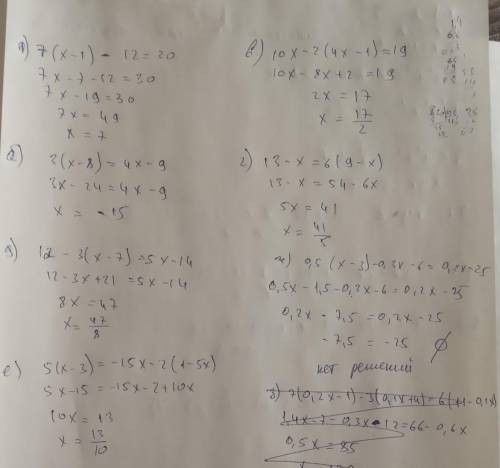 а) 7(x-1) - 12 = 20
7x - 7 - 12 = 30
7x - 19 = 30
7x = 49
x = 7
б) 3(x-8) = 4x - 9
3x - 24 = 4x - 9
x = -15
д) 12 - 3(x-7) = 5x - 14
12 - 3x + 21 = 5x - 14
8x = 47
x = 47/8
е) 5(x-3) = -15x - 2(1-5x)
5x - 15 = -15x - 2 + 10x
10x = 13
x = 13/10
в) 10x - 2(4x-1) = 19
10x - 8x + 2 = 19
2x = 17
x = 17/2
г) 13 - x = 6(9-x)
13 - x = 54 - 6x
5x = 41
x = 41/5
ж) 0,5(x-3) - 0,3x - 6 = 0,2x - 25
0,5x - 1,5 - 0,3x - 6 = 0,2x - 25
0,2x - 7,5 = 0,2x - 25
-7,5 = -25 ∅
нет решений
з) 7(0,2x-1) - 3(0,1x+4) = 6(11-0,1x)
1,4x - 7 - 0,3x - 12 = 66 - 0,6x
0,5x = 85